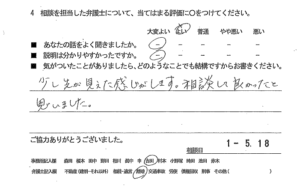 4 相談を担当した弁護士について、当てはまる評価に○をつけてください。
大変よい よい 普通 やや悪い 悪い
■ あなたの話をよく聞きましたか。
■ 説明は分かりやすかったですか。
■ 気がついたことがありましたら、どのようなことでも結構ですからお書きください。
少し先が見えた感じがします。相談して良かったと
思いました。
ご協力ありがとうございました。
1-5.18
相談日